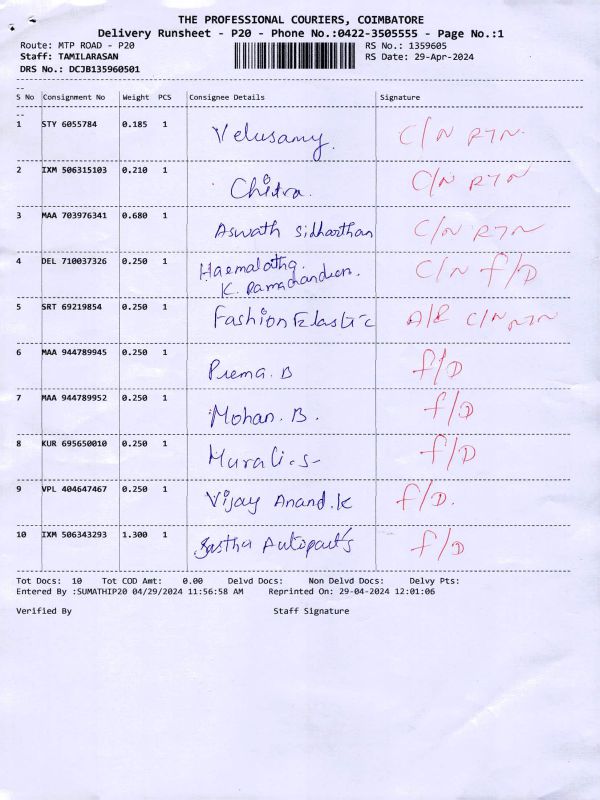 THE PROFESSIONAL COURIERS, COIMBATORE
Delivery Runsheet - P20 - Phone No.:0422-3505555 - Page No.:1
Route: MTP ROAD - P20 RS No.: 1359605
Staff: TAMILARASAN RS Date: 29-Apr-2024
DRS No.: DCJB135960501
S No Consignment No Weight PCS Consignee Details Signature
1 STY 6055784 0.185 1 Velusamy. C/N RTN.
2 IXM 506315103 0.210 1 Chitra. C/N RTN
3 MAA 703976341 0.680 1 Aswath Sidharthan C/N RTN
4 DEL 710037326 0.250 1 Haemalatha. C/N f/D
K. Ramachandran.
5 SRT 69219854 0.250 1 Fashion Elastic A/R C/N RTN
6 MAA 944789945 0.250 1 Prema. B f/D
7 MAA 944789952 0.250 1 Mohan. B. f/D
8 KUR 695650010 0.250 1 Murali.S f/D
9 VPL 404647467 0.250 1 Vijay Anand.K f/D.
10 IXM 506343293 1.300 1 Sastha Autoparts f/D
Tot Docs: 10 Tot COD Amt: 0.00 Delvd Docs: Non Delvd Docs: Delvy Pts:
Entered By :SUMATHIP20 04/29/2024 11:56:58 AM Reprinted On: 29-04-2024 12:01:06
Verified By Staff Signature